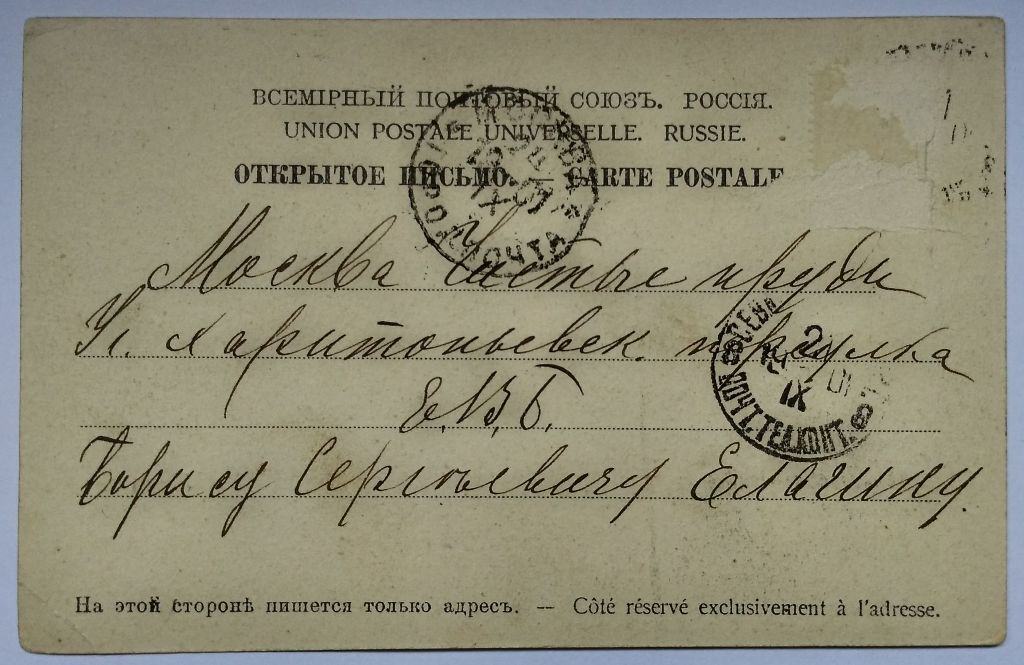 ВСЕМІРНЫЙ ПОЧТОВЫЙ СОЮЗЪ. РОССІЯ.
UNION POSTALE UNIVERSELLE. RUSSIE.
ОТКРЫТОЕ ПИСЬМО. — CARTE POSTALE
МОСКВА
ПОЧТА
IX
Москва Чистые пруды
Уг. Харитоньевск. переулка
Е.В.Б.
Борису Сергѣевичу Елагину.
ПОЧТ. ТЕЛ. КОНТ.
IX
На этой сторонѣ пишется только адресъ. — Côté réservé exclusivement à l'adresse.